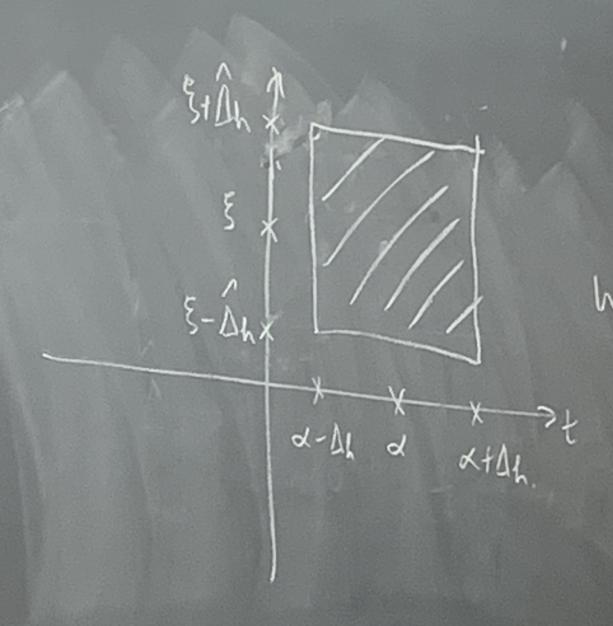 ξ+Δ̂h
ξ
ξ-Δ̂h
t
α-Δh α α+Δh.
h